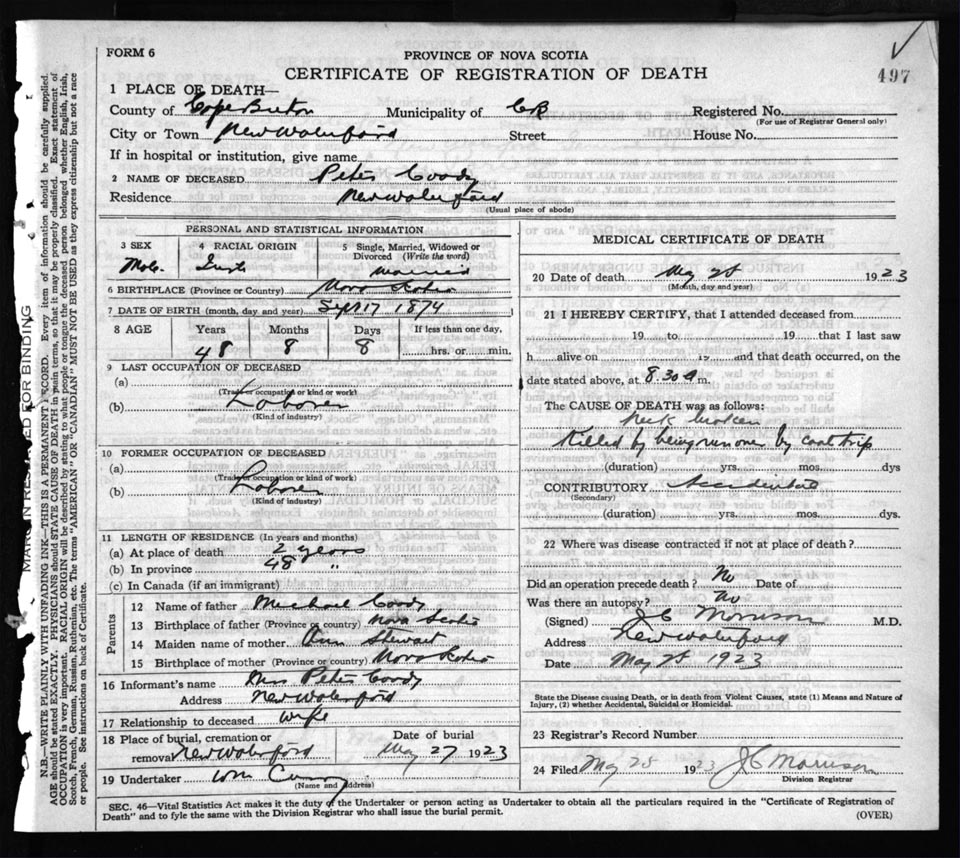 FORM 6
PROVINCE OF NOVA SCOTIA
497
CERTIFICATE OF REGISTRATION OF DEATH
1 PLACE OF DEATH—
County of Cape Breton Municipality of CB Registered No.
(For use of Registrar General only)
City or Town New Waterford Street House No.
If in hospital or institution, give name
2 NAME OF DECEASED Peter Coody
Residence New Waterford
(Usual place of abode)
PERSONAL AND STATISTICAL INFORMATION
3 SEX 4 RACIAL ORIGIN 5 Single, Married, Widowed or Divorced (Write the word)
Male Irish Married
6 BIRTHPLACE (Province or Country) Nova Scotia
7 DATE OF BIRTH (month, day and year) Sept 17 1874
8 AGE Years Months Days If less than one day,
48 8 8 hrs. or min.
9 LAST OCCUPATION OF DECEASED
(a)
(Trade or occupation or kind of work)
(b) Laborer
(Kind of industry)
10 FORMER OCCUPATION OF DECEASED
(a)
(Trade or occupation or kind of work)
(b) Laborer
(Kind of industry)
11 LENGTH OF RESIDENCE (In years and months)
(a) At place of death 2 years
(b) In province 48 "
(c) In Canada (if an immigrant)
Parents
12 Name of father Michael Coody
13 Birthplace of father (Province or country) Nova Scotia
14 Maiden name of mother Ann Stewart
15 Birthplace of mother (Province or country) Nova Scotia
16 Informant's name Mrs Peter Coody
Address New Waterford
17 Relationship to deceased wife
18 Place of burial, cremation or removal New Waterford Date of burial May 27 1923
19 Undertaker Wm
(Name and address)
MEDICAL CERTIFICATE OF DEATH
20 Date of death May 25 1923
(Month, day and year)
21 I HEREBY CERTIFY, that I attended deceased from
19 to 19 that I last saw
h alive on 19 and that death occurred, on the
date stated above, at 8.30 a m.
The CAUSE OF DEATH was as follows:
Neck broken
Killed by being run over by coal trip
(duration) yrs. mos. dys
CONTRIBUTORY Accidental
(Secondary)
(duration) yrs. mos. dys.
22 Where was disease contracted if not at place of death?
Did an operation precede death? No Date of
Was there an autopsy? No
(Signed) J C Morrison M.D.
Address New Waterford
Date May 25 1923
State the Disease causing Death, or in death from Violent Causes, state (1) Means and Nature of Injury, (2) whether Accidental, Suicidal or Homicidal.
23 Registrar's Record Number
24 Filed May 25 1923 J C Morrison
Division Registrar
SEC. 46—Vital Statistics Act makes it the duty of the Undertaker or person acting as Undertaker to obtain all the particulars required in the "Certificate of Registration of
Death" and to fyle the same with the Division Registrar who shall issue the burial permit.
(OVER)
MARGIN RESERVED FOR BINDING
N.B.—WRITE PLAINLY WITH UNFADING INK—THIS IS A PERMANENT RECORD. Every item of information should be carefully supplied.
AGE should be stated EXACTLY. PHYSICIANS should STATE CAUSE OF DEATH in plain terms, so that it may be properly classified. Exact statement of
OCCUPATION is very important. RACIAL ORIGIN will be described by stating to what people or tongue the deceased person belonged whether English, Irish,
Scotch, French, German, Russian, Ruthenian, etc. The terms "AMERICAN" OR "CANADIAN" MUST NOT BE USED as they express citizenship but not a race
or people. See instructions on back of Certificate.